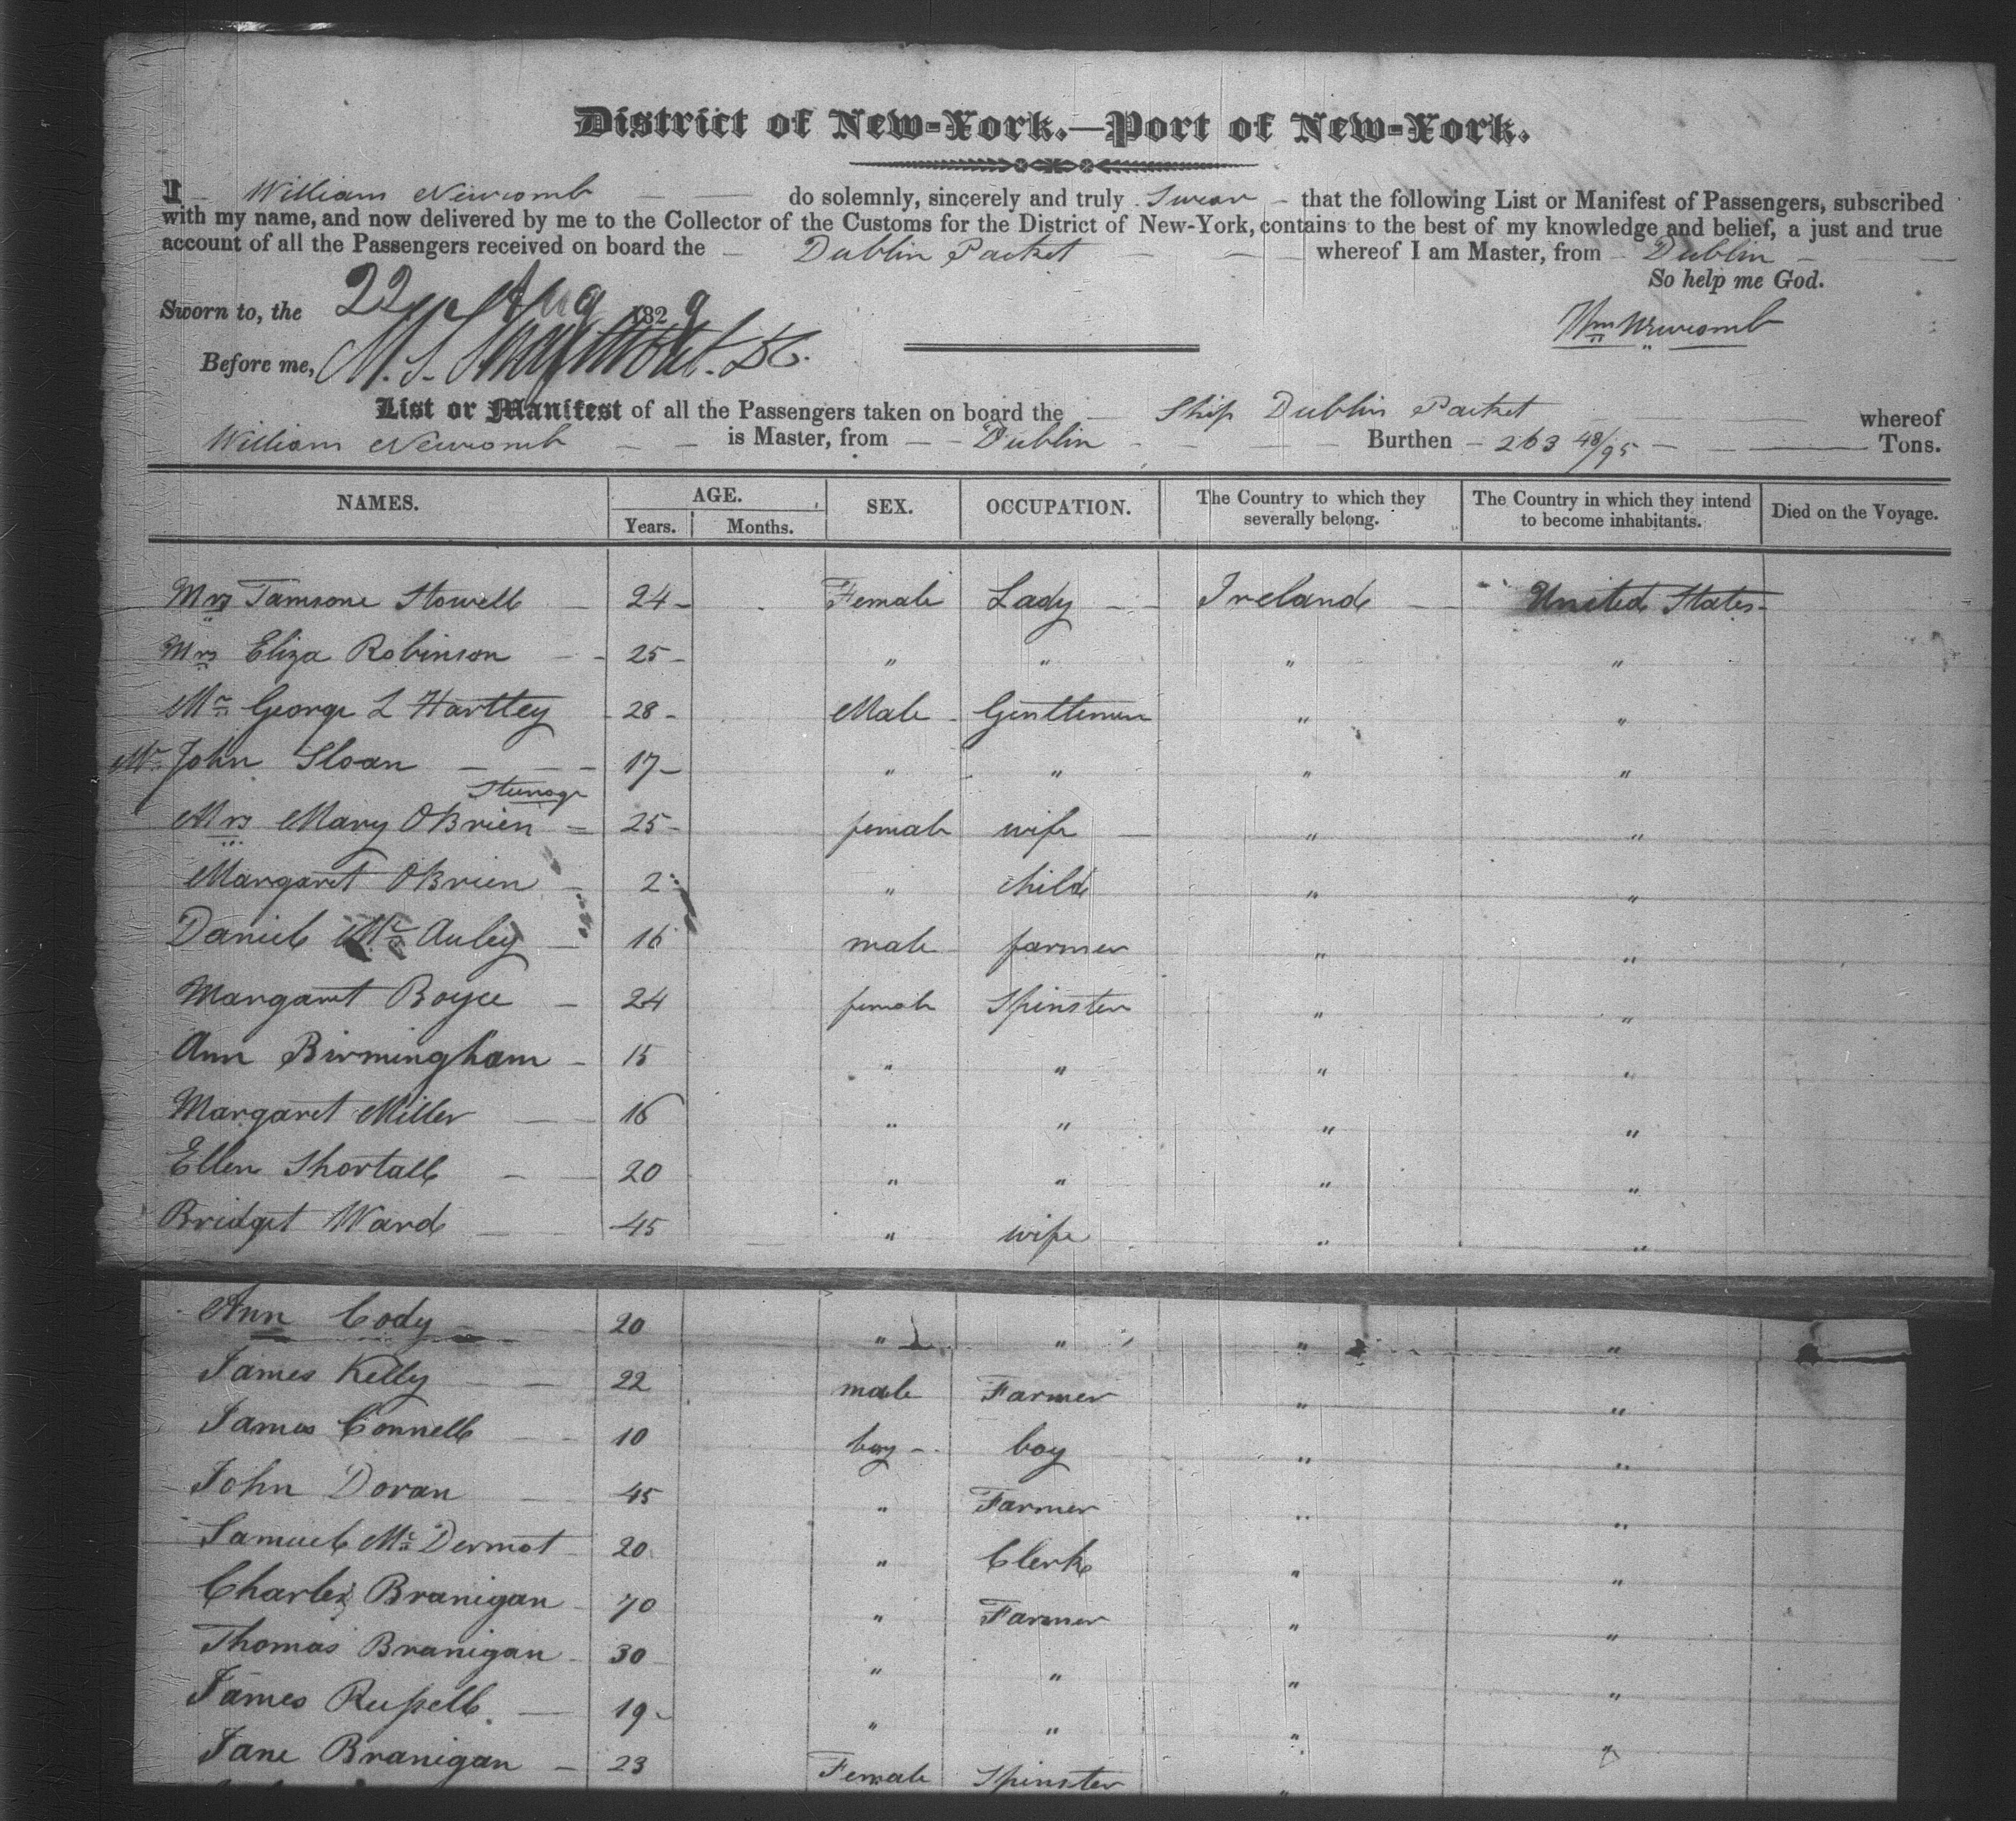 District of New-York.—Port of New-York.
I William Newcomb do solemnly, sincerely and truly Swear that the following List or Manifest of Passengers, subscribed
with my name, and now delivered by me to the Collector of the Customs for the District of New-York, contains to the best of my knowledge and belief, a just and true
account of all the Passengers received on board the Dublin Packet whereof I am Master, from Dublin
So help me God.
Sworn to, the 22 Aug 1829
Wm Newcomb
Before me, M. S.
List or Manifest of all the Passengers taken on board the Ship Dublin Packet whereof
William Newcomb is Master, from Dublin Burthen 263 48/95 Tons.
NAMES. AGE. SEX. OCCUPATION. The Country to which they severally belong. The Country in which they intend to become inhabitants. Died on the Voyage.
Years. Months.
Mrs Tamsone Stowell 24 Female Lady Ireland United States
Mrs Eliza Robinson 25 " " " "
Mr George L Hartley 28 Male Gentleman " "
Mr John Sloan 17 " " " "
Steerage
Mrs Mary OBrien 25 female wife " "
Margaret OBrien 2 " child " "
Daniel Mc Auley 16 male farmer " "
Margaret Boyce 24 female Spinster " "
Ann Birmingham 15 " " " "
Margaret Miller 16 " " " "
Ellen Shortall 20 " " " "
Bridget Ward 45 " wife " "
Ann Cody 20 " " " "
James Kelly 22 male Farmer " "
James Connell 10 boy boy " "
John Doran 45 " Farmer " "
Samuel Mc Dermot 20 " Clerk " "
Charles Branigan 70 " Farmer " "
Thomas Branigan 30 " " " "
James Russell 19 " " " "
Jane Branigan 23 Female Spinster "